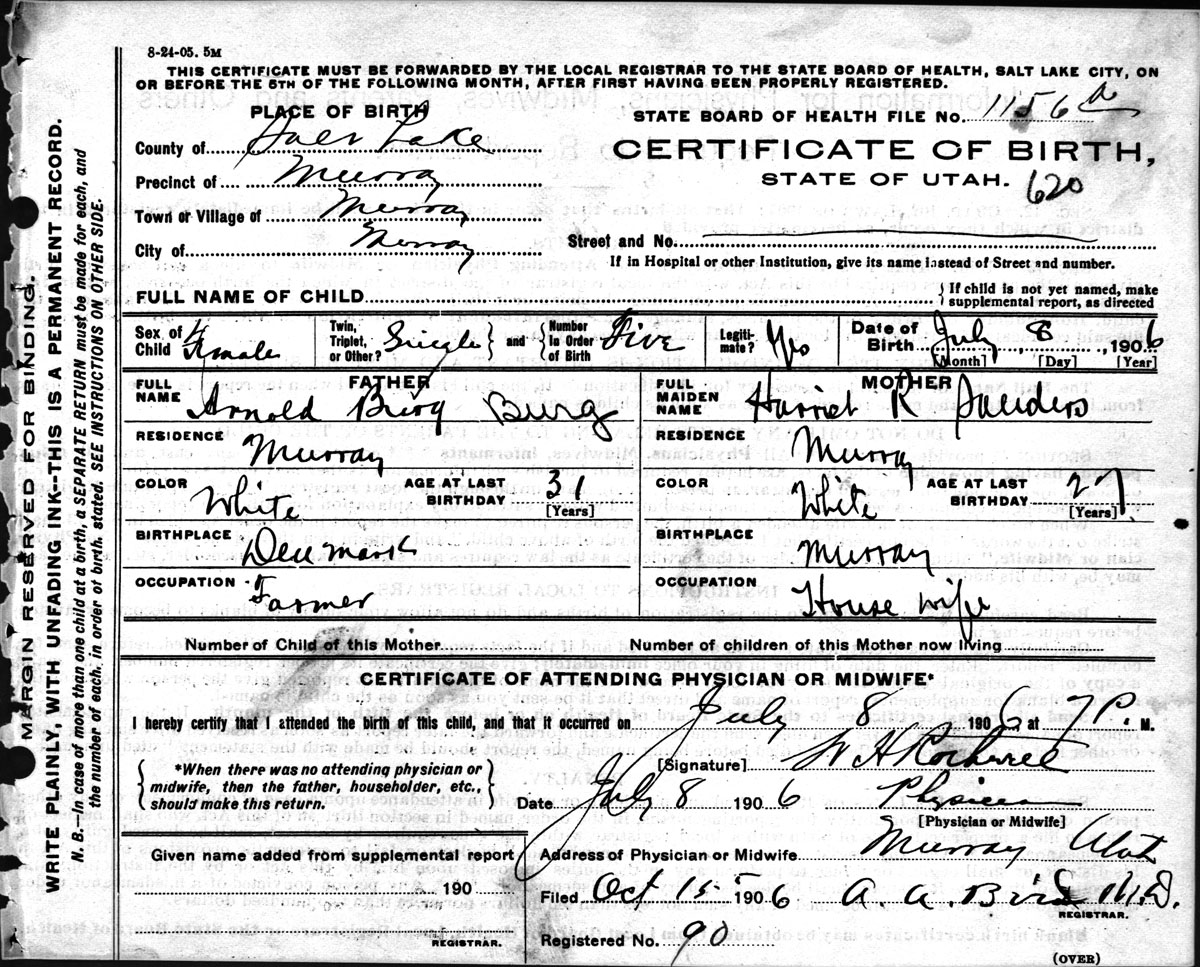 8-24-05. 5M
THIS CERTIFICATE MUST BE FORWARDED BY THE LOCAL REGISTRAR TO THE STATE BOARD OF HEALTH, SALT LAKE CITY, ON
OR BEFORE THE 5TH OF THE FOLLOWING MONTH, AFTER FIRST HAVING BEEN PROPERLY REGISTERED.
PLACE OF BIRTH
STATE BOARD OF HEALTH FILE No. 1156
County of Salt Lake
CERTIFICATE OF BIRTH,
STATE OF UTAH. 620
Precinct of Murray
Town or Village of Murray
City of Murray
Street and No.
If in Hospital or other Institution, give its name instead of Street and number.
FULL NAME OF CHILD
{ If child is not yet named, make
supplemental report, as directed
Sex of Child Female
Twin, Triplet, or Other? Single } and { Number in Order of Birth Five
Legiti-mate? Yes
Date of Birth July 8, 1906
[Month] [Day] [Year]
FATHER
FULL NAME Arnold Burg Burg
RESIDENCE Murray
COLOR White AGE AT LAST BIRTHDAY 31
[Years]
BIRTHPLACE Denmark
OCCUPATION Farmer
MOTHER
FULL MAIDEN NAME Harriet R Sanders
RESIDENCE Murray
COLOR White AGE AT LAST BIRTHDAY 27
[Years]
BIRTHPLACE Murray
OCCUPATION House wife
Number of Child of this Mother
Number of children of this Mother now living
CERTIFICATE OF ATTENDING PHYSICIAN OR MIDWIFE*
I hereby certify that I attended the birth of this child, and that it occurred on July 8 1906 at 7 P. M.
{ *When there was no attending physician or
midwife, then the father, householder, etc.,
should make this return. }
[Signature] W H Rothwell
Date July 8 1906 Physician
[Physician or Midwife]
Given name added from supplemental report
190
REGISTRAR.
Address of Physician or Midwife Murray Utah
Filed Oct 15 1906 A. A. Bird M.D.
REGISTRAR.
Registered No. 90
(OVER)
MARGIN RESERVED FOR BINDING.
WRITE PLAINLY, WITH UNFADING INK--THIS IS A PERMANENT RECORD.
N. B.—In case of more than one child at a birth, a SEPARATE RETURN must be made for each, and
the number of each, in order of birth, stated. SEE INSTRUCTIONS ON OTHER SIDE.